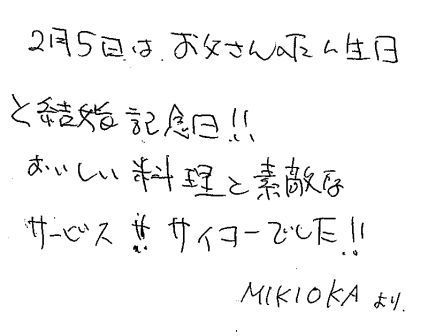 2月5日は、お父さんのたん生日
と結婚記念日!!
おいしい料理と素敵な
サービス!! サイコーでした!!
MIKIOKAより.